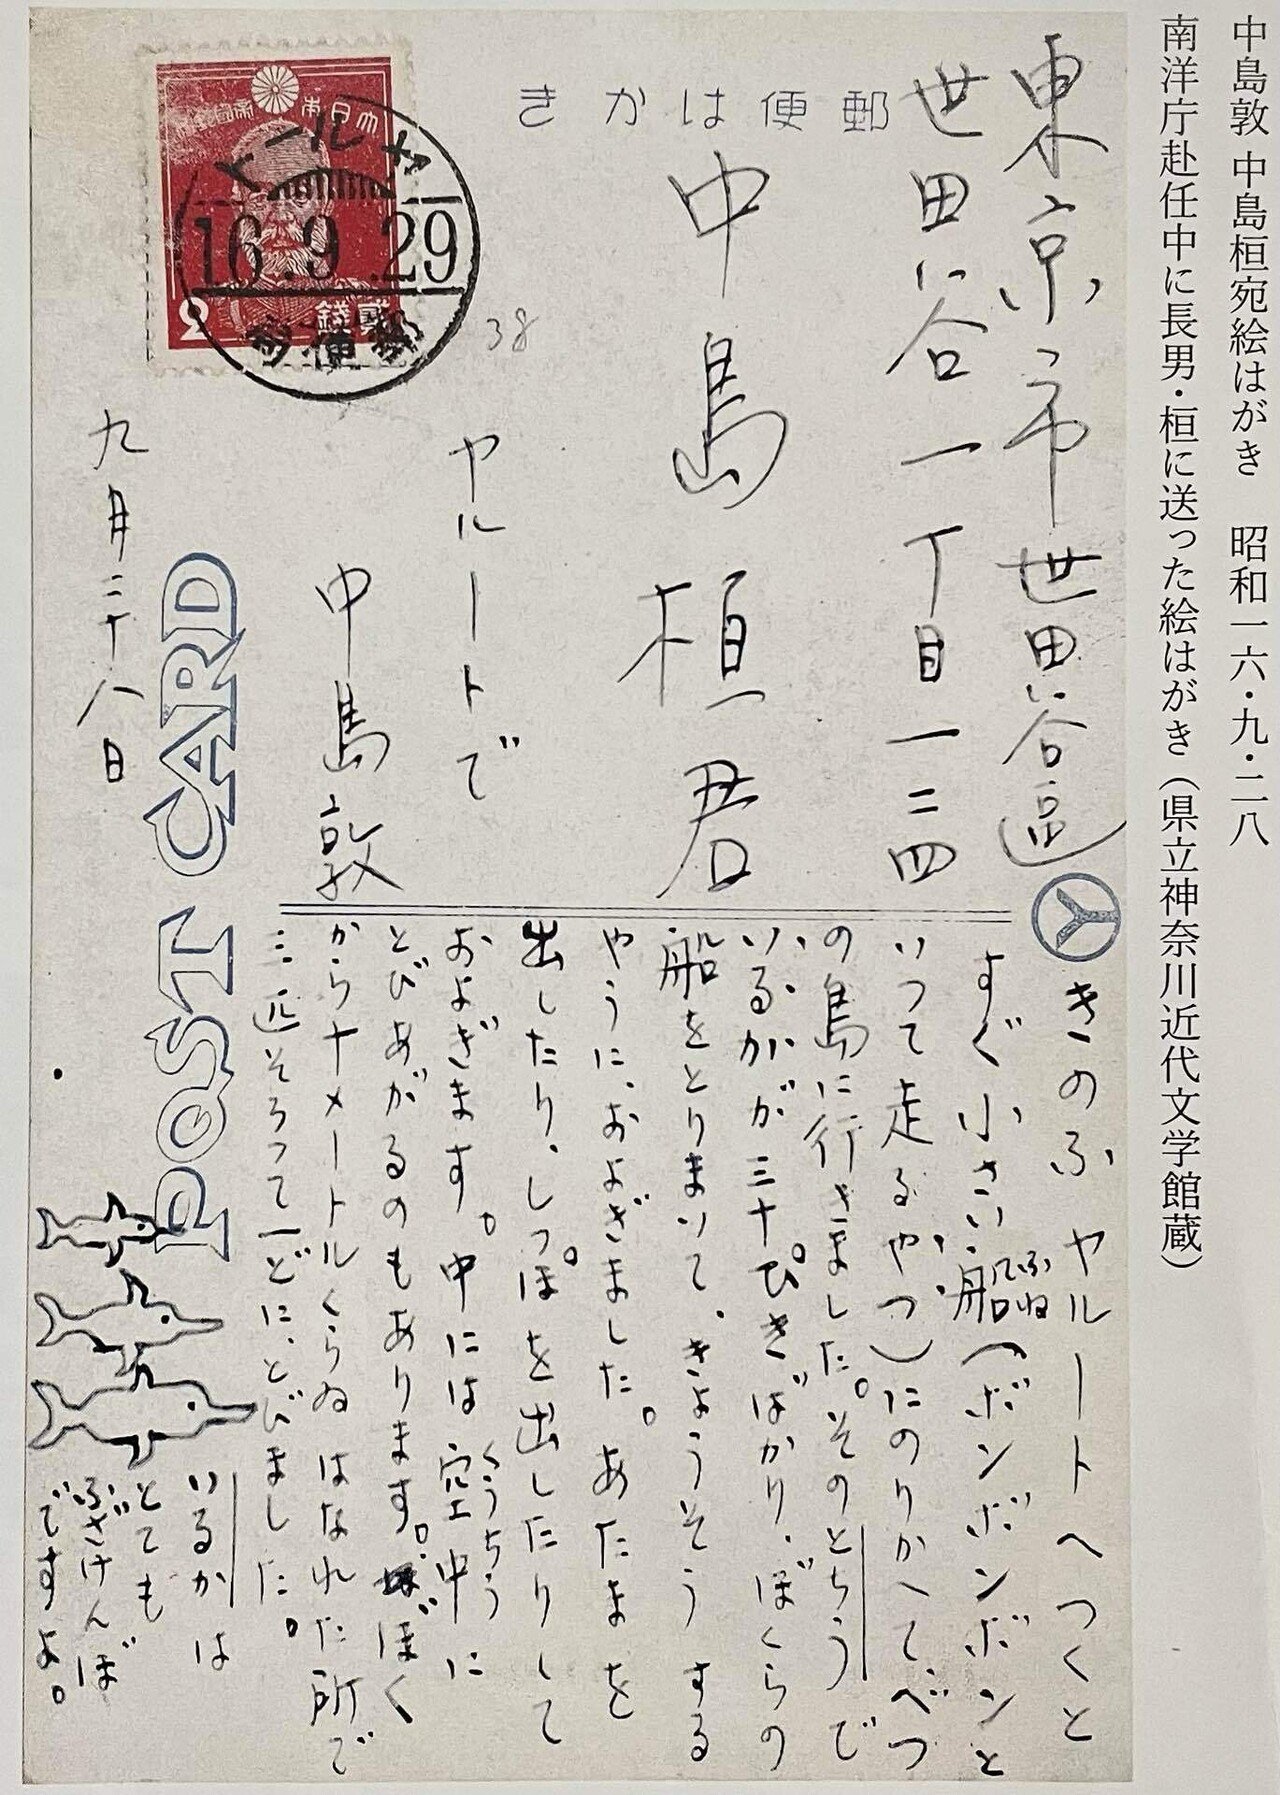 中島敦 中島桓宛絵はがき　昭和一六・九・二八
南洋庁赴任中に長男・桓に送った絵はがき（県立神奈川近代文学館蔵）
きかは便郵
東京市世田谷區
世田谷一丁目一二四
中島桓君
ヤルートで
中島敦
九月二十八日
38
大日本帝國郵便
貳錢
2
ヤルート
16.9.29
郵便局
POST CARD
きのふヤルートへつくと
すぐ小さい船（ボンボンボンと
ふね
いつて走るやつ）にのりかへて、べつ
の島に行きました。そのとちうで
いるかが三十ぴきばかり、ぼくらの
船をとりまいて、きようそうする
やうに、およぎました。あたまを
出したり、しつぽを出したりして
およぎます。中には空中に
くうちう
とびあがるのもあります。ぼく
から十メートルくらゐはなれた所で
三匹そろつて一どに、とびました。
いるかは
とても
ふざけんぼ
ですよ。